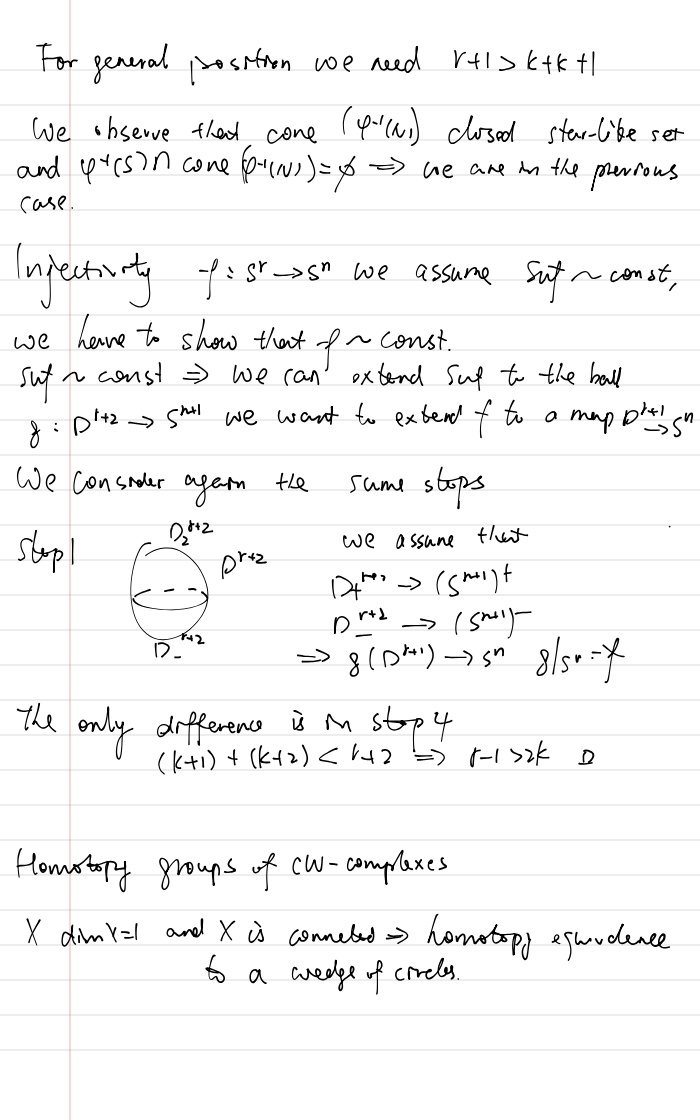 For general position we need r+1 > k+k+1
We observe that cone (φ⁻¹(N)) closed star-like set
and φ⁻¹(S) ∩ cone (φ⁻¹(N)) = ∅ ⟹ we are in the previous
case.
Injectivity f : Sʳ → Sⁿ we assume Suf ~ const,
we have to show that f ~ const.
Suf ~ const ⇒ we can extend Suf to the ball
g : Dʳ⁺² → Sⁿ⁺¹ we want to extend f to a map Dʳ⁺¹ → Sⁿ
We consider again the same steps
Step 1
D₂ʳ⁺²
Dʳ⁺²
D₋ʳ⁺²
we assume that
D₊ʳ⁺² → (Sⁿ⁺¹)⁺
D₋ʳ⁺² → (Sⁿ⁺¹)⁻
⇒ g(Dʳ⁺¹) → Sⁿ g|Sʳ = f
The only difference is in step 4
(k+1) + (k+2) < r+2 ⇒ r-1 > 2k □
Homotopy groups of CW-complexes
X dim X=1 and X is connected ⇒ homotopy equivalence
to a wedge of circles.